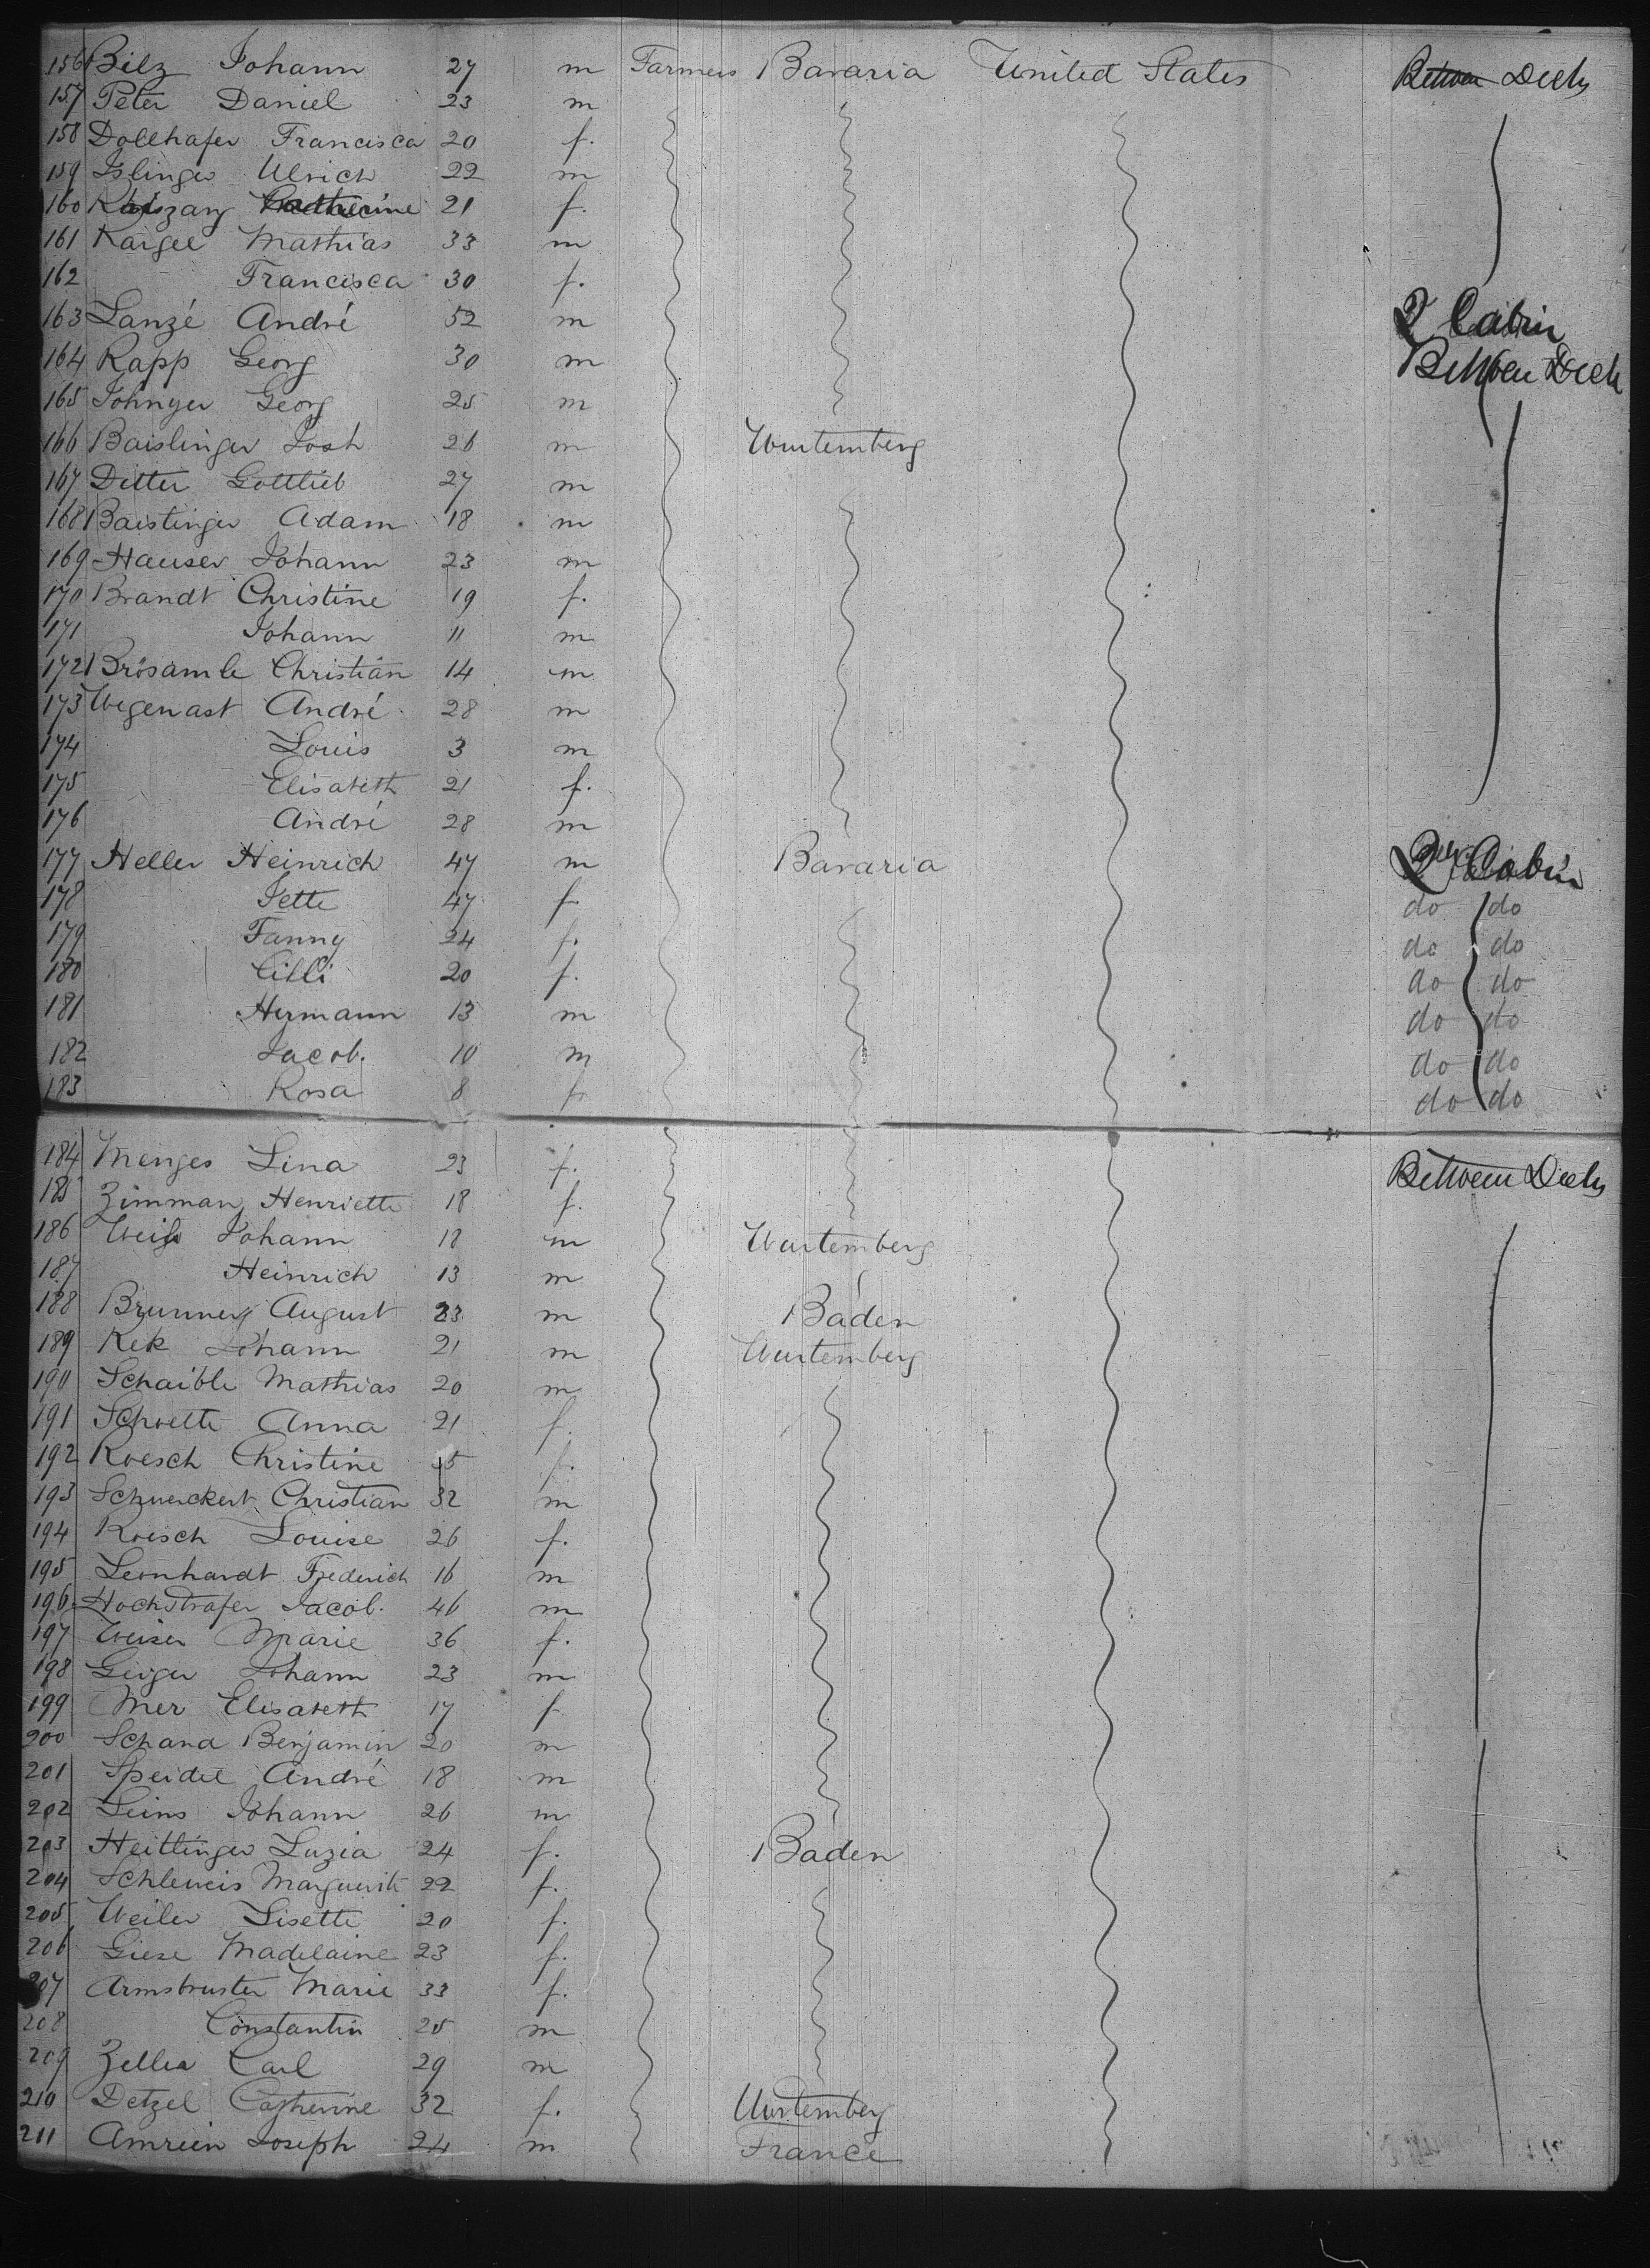 156 Bilz Johann 27 m Farmers Bavaria United States Between Decks
157 Peter Daniel 23 m
158 Dollhafer Francisca 20 f.
159 Islinger Ulrich 22 m
160 Catherine 21 f.
161 Kaigel Mathias 33 m
162 Francisca 30 f.
163 Lanzé André 52 m 2 Cabin
164 Rapp Georg 30 m Between Deck
165 Johnyer Georg 25 m
166 Baislinger Josh 26 m Wurtemberg
167 Ditter Gottlieb 27 m
168 Baistinger Adam 18 m
169 Hauser Johann 23 m
170 Brandt Christine 19 f.
171 Johann 11 m
172 Brösamle Christian 14 m
173 Wegenast André 28 m
174 Louis 3 m
175 Elisabeth 21 f.
176 André 28 m
177 Heller Heinrich 47 m Bavaria 2 Cabin
178 Jette 47 f. do do
179 Fanny 24 f. do do
180 Cilli 20 f. do do
181 Hermann 13 m do do
182 Jacob. 10 m do do
183 Rosa 8 f. do do
184 Menges Lina 23 f. Between Decks
185 Zimman Henriette 18 f.
186 Weiss Johann 18 m Wurtemberg
187 Heinrich 13 m
188 Brunner August 23 m Baden
189 Kek Johann 21 m Wurtemberg
190 Schaible Mathias 20 m
191 Schoette Anna 21 f.
192 Roesch Christine f.
193 Schweckert Christian 32 m
194 Roesch Louise 26 f.
195 Leonhardt Frederich 16 m
196 Hochstrafer Jacob. 46 m
197 Weiser Marie 36 f.
198 Geiger Johann 23 m
199 Mer Elisabeth 17 f
200 Schana Benjamin 20 m
201 Speidel André 18 m
202 Leins Johann 26 m
203 Heitlinger Luzia 24 f. Baden
204 Marguerite 22 f.
205 Weiler Lisette 20 f.
206 Giese Madelaine 23 f.
207 Armbruster Marie 33 f.
208 Constantin 25 m
209 Zeller Carl 29 m
210 Detzel Catherine 32 f. Wurtemberg
211 Amrein Joseph 24 m France